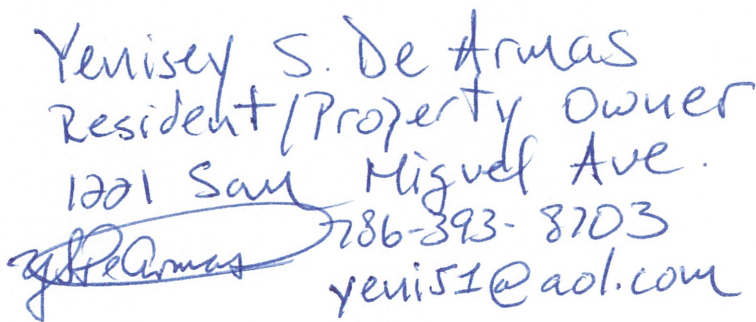 Yenisey S. De Armas
Resident/Property Owner
1221 San Miguel Ave.
786-393-8703
YSDeArmas
yenis1@aol.com